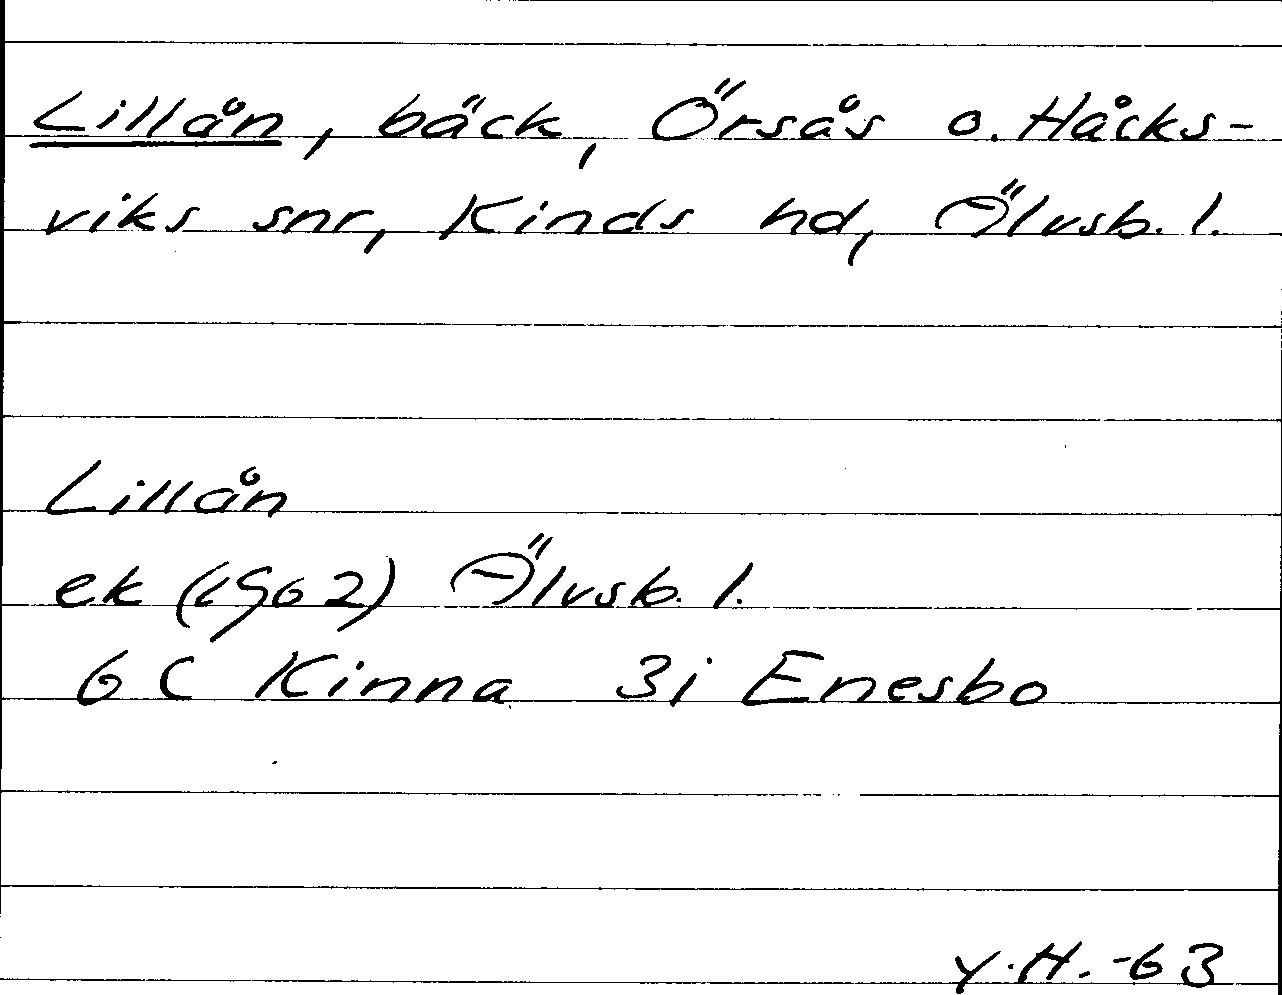 Lillån, bäck, Örsås o. Håcks-
viks snr, Kinds hd, Älvsb. l.
Lillån
ek (1962) Älvsb. l.
6 C Kinna 3i Enesbo
Y.H. -63